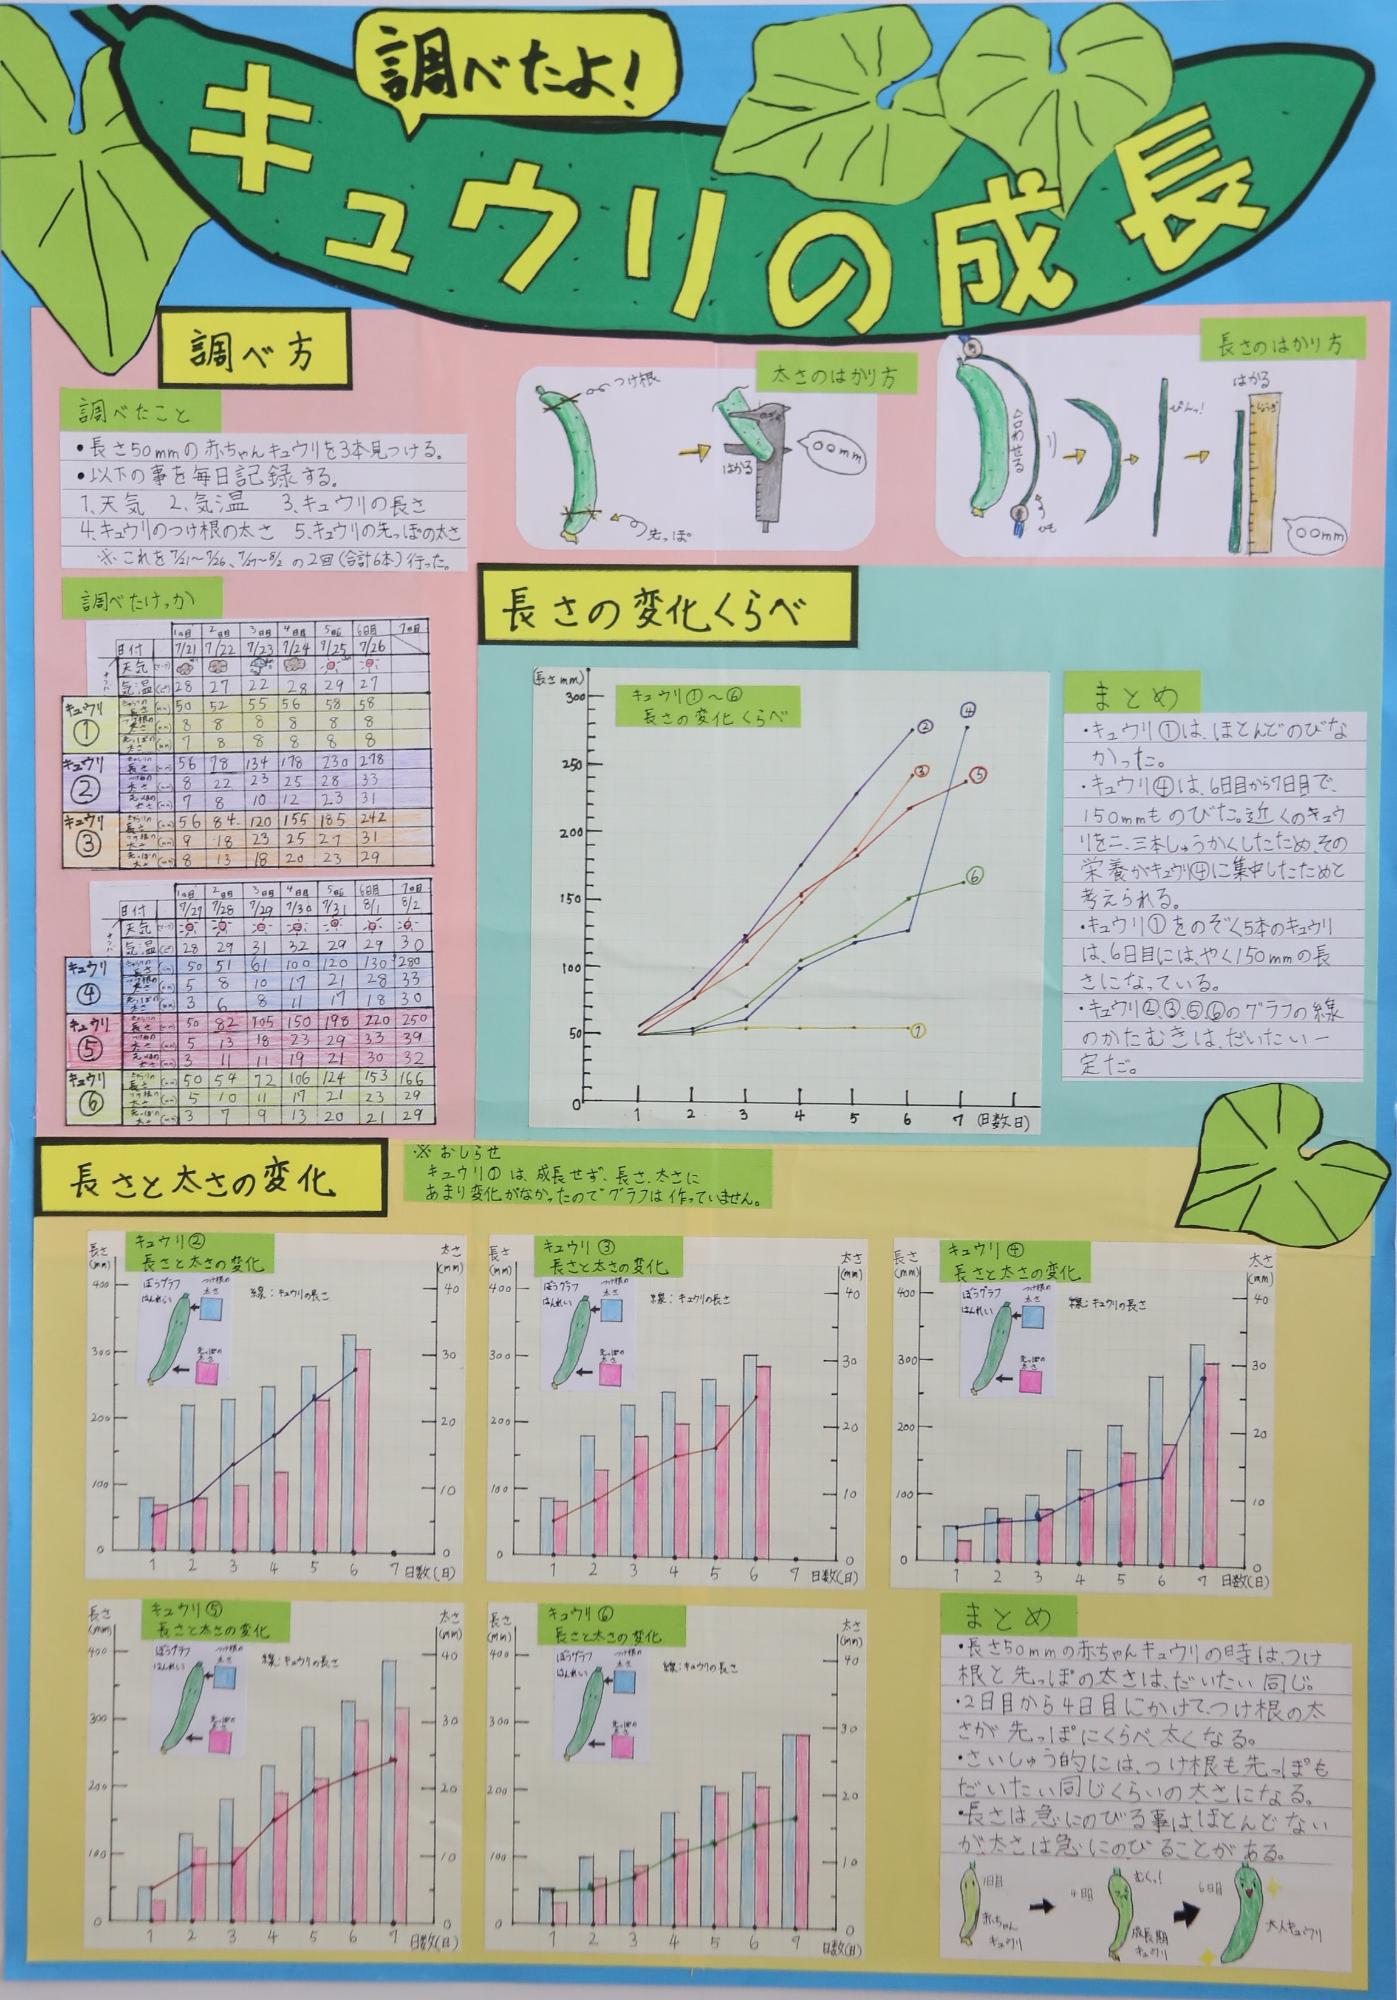 調べたよ!
キュウリの成長
調べ方
調べたこと
・長さ50mmの赤ちゃんキュウリを3本見つける。
・以下の事を毎日記録する。
1.天気 2.気温 3.キュウリの長さ
4.キュウリのつけ根の太さ 5.キュウリの先っぽの太さ
※これを7/21~7/26、7/27~8/2の2回(合計6本)行った。
太さのはかり方
つけ根
先っぽ
はかる
○○mm
長さのはかり方
合わせる
ひも
ぴんっ!
はかる
じょうぎ
○○mm
調べたけっか
1日目 2日目 3日目 4日目 5日目 6日目 7日目
日付 7/21 7/22 7/23 7/24 7/25 7/26
天気
気温 28 27 22 28 29 27
キュウリ① 長さ(mm) 50 52 55 56 58 58
つけ根の太さ(mm) 8 8 8 8 8 8
先っぽの太さ(mm) 7 8 8 8 8 8
キュウリ② 長さ(mm) 56 78 134 178 230 278
つけ根の太さ(mm) 8 22 23 25 28 33
先っぽの太さ(mm) 7 8 10 12 23 31
キュウリ③ 長さ(mm) 56 84 120 155 185 242
つけ根の太さ(mm) 9 18 23 25 27 31
先っぽの太さ(mm) 8 13 18 20 23 29
1日目 2日目 3日目 4日目 5日目 6日目 7日目
日付 7/27 7/28 7/29 7/30 7/31 8/1 8/2
天気
気温 28 29 31 32 29 29 30
キュウリ④ 長さ(mm) 50 51 61 100 120 130 280
つけ根の太さ(mm) 5 8 10 17 21 28 33
先っぽの太さ(mm) 3 6 8 11 17 18 30
キュウリ⑤ 長さ(mm) 50 82 105 150 198 220 250
つけ根の太さ(mm) 5 13 18 23 29 33 39
先っぽの太さ(mm) 3 11 11 19 21 30 32
キュウリ⑥ 長さ(mm) 50 54 72 106 124 153 166
つけ根の太さ(mm) 5 10 11 17 21 23 29
先っぽの太さ(mm) 3 7 9 13 20 21 29
長さの変化くらべ
(長さmm)
キュウリ①~⑥
長さの変化くらべ
300
250
200
150
100
50
0
② ④ ③ ⑤ ⑥ ①
1 2 3 4 5 6 7 (日数日)
まとめ
・キュウリ①は、ほとんどのびな
かった。
・キュウリ④は、6日目から7日目で、
150mmものびた。近くのキュウ
リを二、三本しゅうかくしたため、その
栄養がキュウリ④に集中したためと
考えられる。
・キュウリ①をのぞく5本のキュウリ
は、6日目にはやく150mmの長
さになっている。
・キュウリ②、③、⑤、⑥のグラフの線
のかたむきは、だいたい一
定だ。
長さと太さの変化
※おしらせ
キュウリ①は、成長せず、長さ、太さに
あまり変化がなかったのでグラフは作っていません。
キュウリ②
長さと太さの変化
長さ(mm) 太さ(mm)
ぼうグラフ はんれい
つけ根の太さ
先っぽの太さ
線:キュウリの長さ
400 300 200 100 0
40 30 20 10 0
1 2 3 4 5 6 7 日数(日)
キュウリ③
長さと太さの変化
長さ(mm) 太さ(mm)
ぼうグラフ はんれい
つけ根の太さ
先っぽの太さ
線:キュウリの長さ
400 300 200 100 0
40 30 20 10 0
1 2 3 4 5 6 7 日数(日)
キュウリ④
長さと太さの変化
長さ(mm) 太さ(mm)
ぼうグラフ はんれい
つけ根の太さ
先っぽの太さ
線:キュウリの長さ
400 300 200 100 0
40 30 20 10 0
1 2 3 4 5 6 7 日数(日)
キュウリ⑤
長さと太さの変化
長さ(mm) 太さ(mm)
ぼうグラフ はんれい
つけ根の太さ
先っぽの太さ
線:キュウリの長さ
400 300 200 100 0
40 30 20 10 0
1 2 3 4 5 6 7 日数(日)
キュウリ⑥
長さと太さの変化
長さ(mm) 太さ(mm)
ぼうグラフ はんれい
つけ根の太さ
先っぽの太さ
線:キュウリの長さ
400 300 200 100 0
40 30 20 10 0
1 2 3 4 5 6 7 日数(日)
まとめ
・長さ50mmの赤ちゃんキュウリの時は、つけ
根と先っぽの太さは、だいたい同じ。
・2日目から4日目にかけて、つけ根の太
さが先っぽにくらべ、太くなる。
・さいしゅう的には、つけ根も先っぽも
だいたい同じくらいの太さになる。
・長さは急にのびる事はほとんどない
が太さは急にのびることがある。
1日目 赤ちゃんキュウリ
4日目 むくっ! 成長期キュウリ
6日目 大人キュウリ